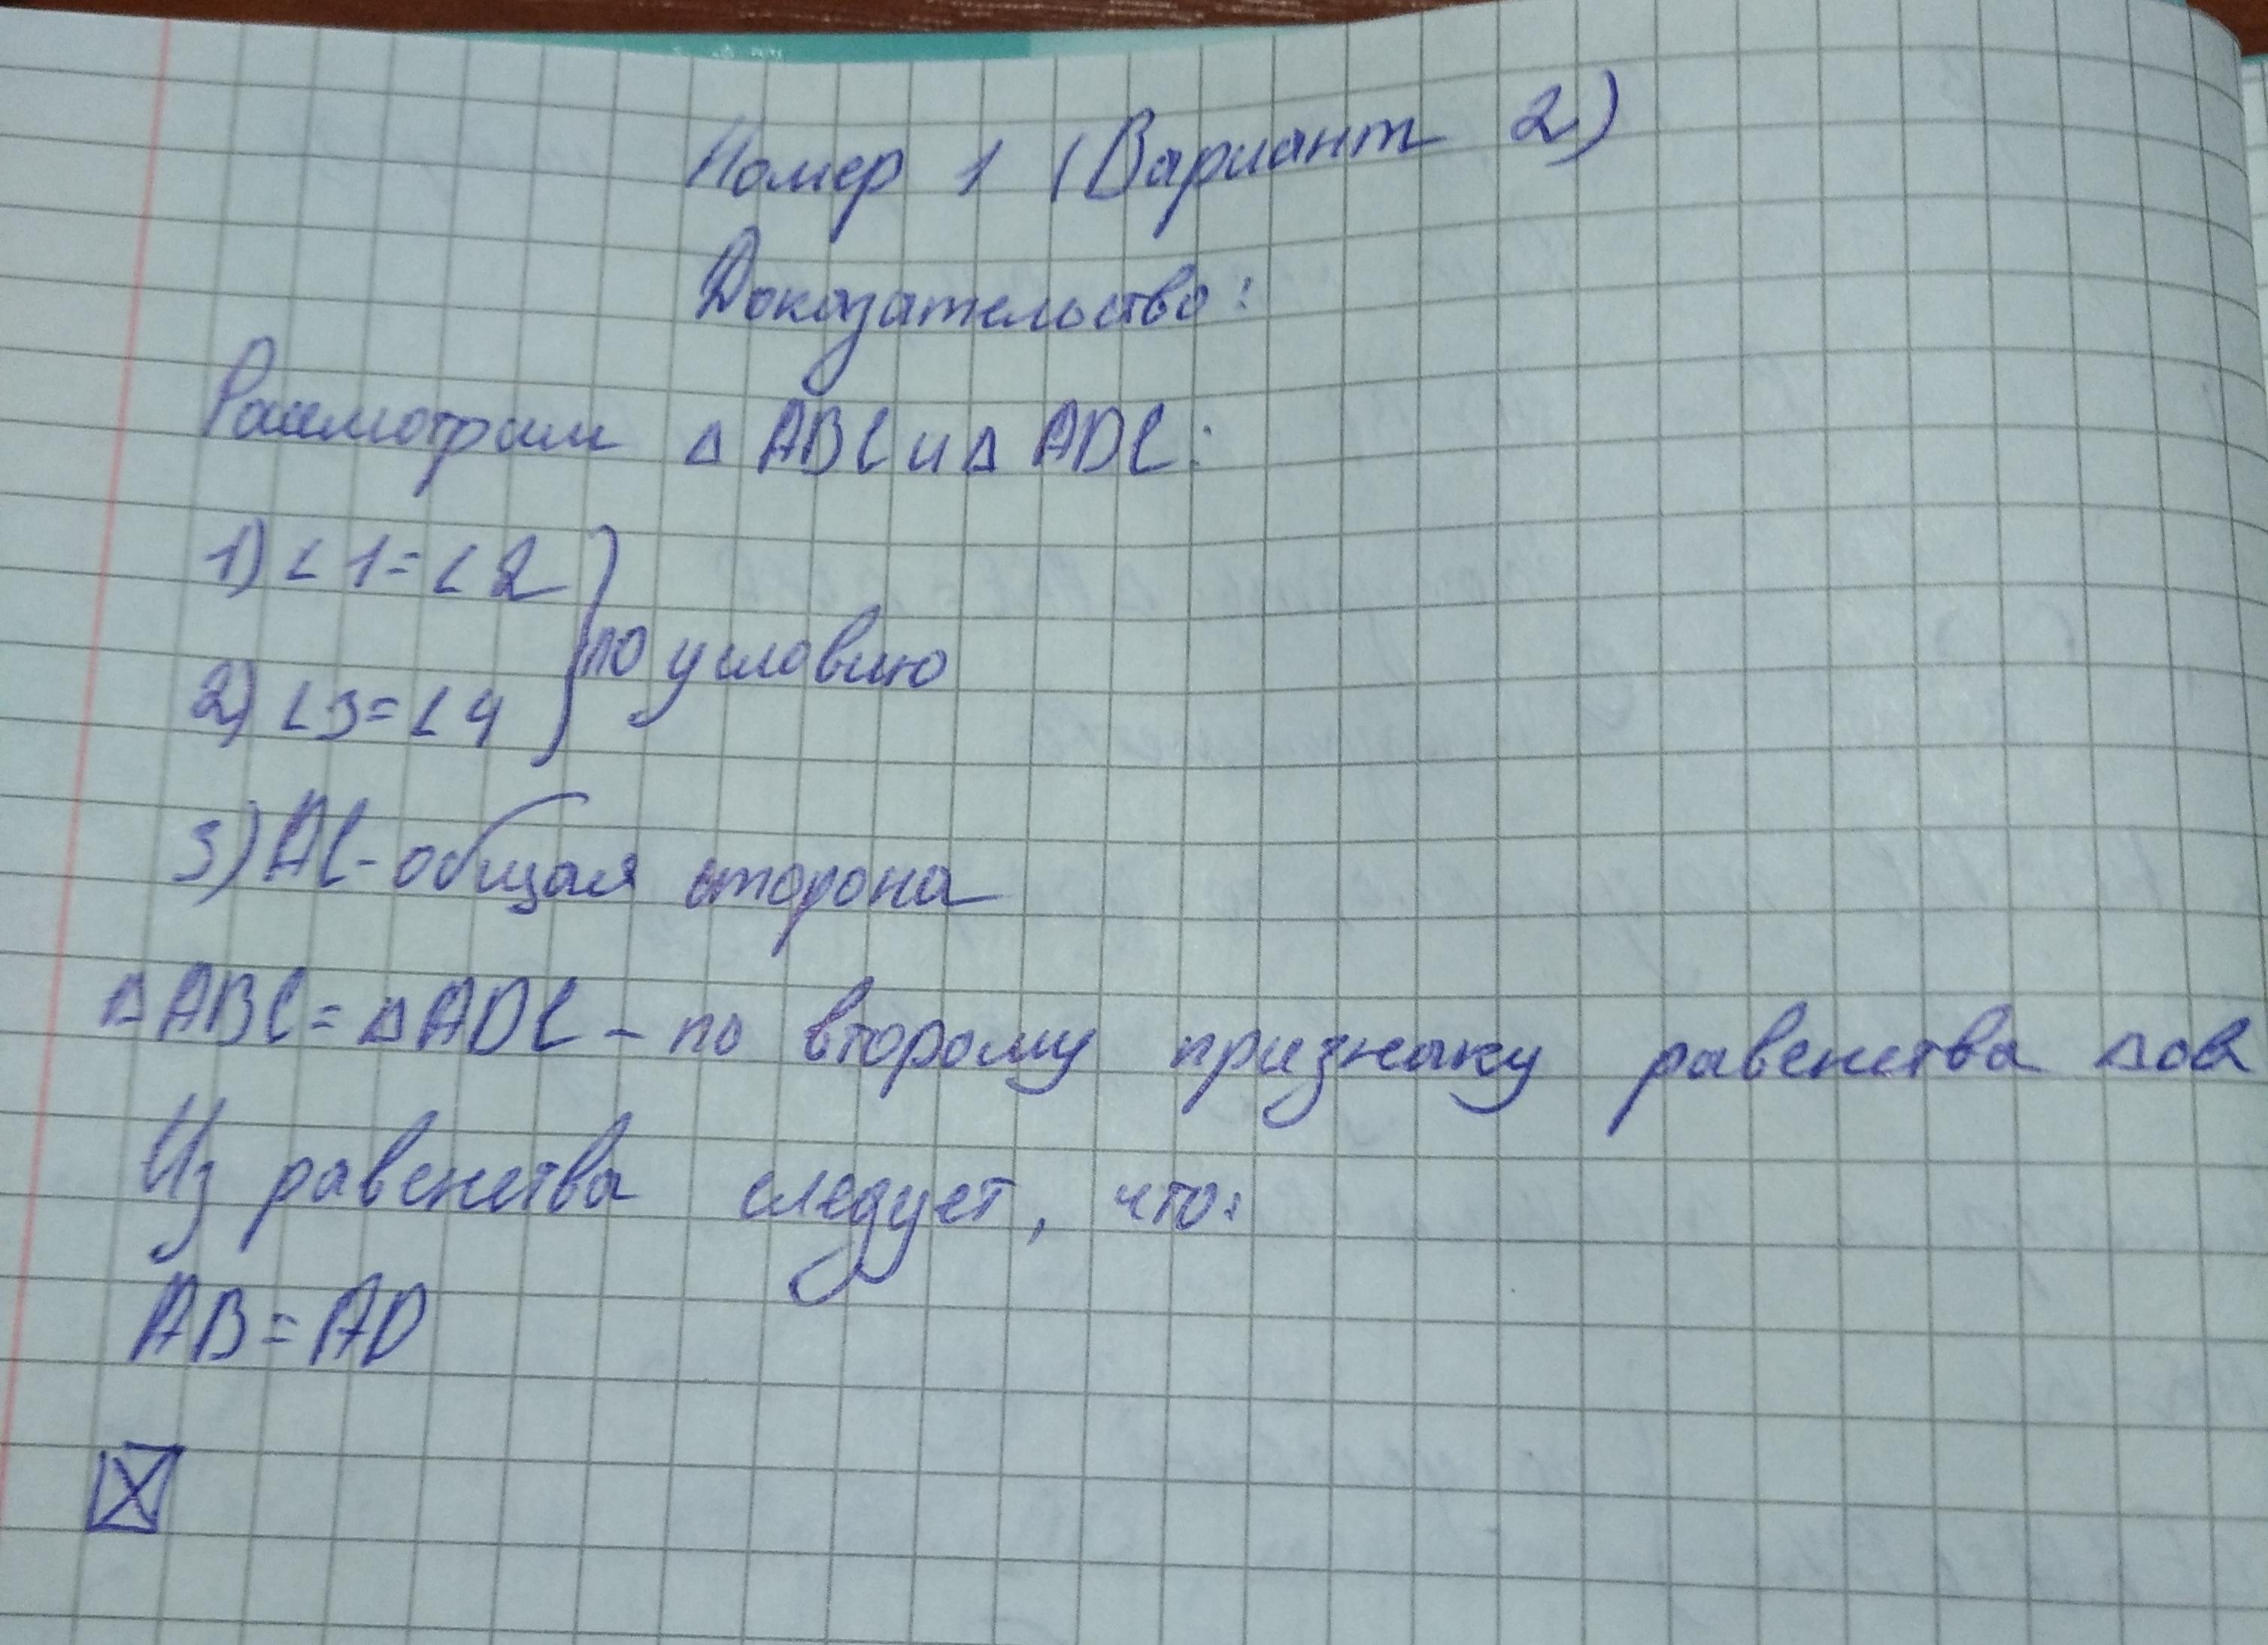 Номер 1 (Вариант 2)
Доказательство:
Рассмотрим △ ABC и △ ADC:
1) ∠1=∠2
2) ∠3=∠4 } по условию
3) AC - общая сторона
△ABC=△ADC - по второму признаку равенства △ов
Из равенства следует, что:
AB=AD